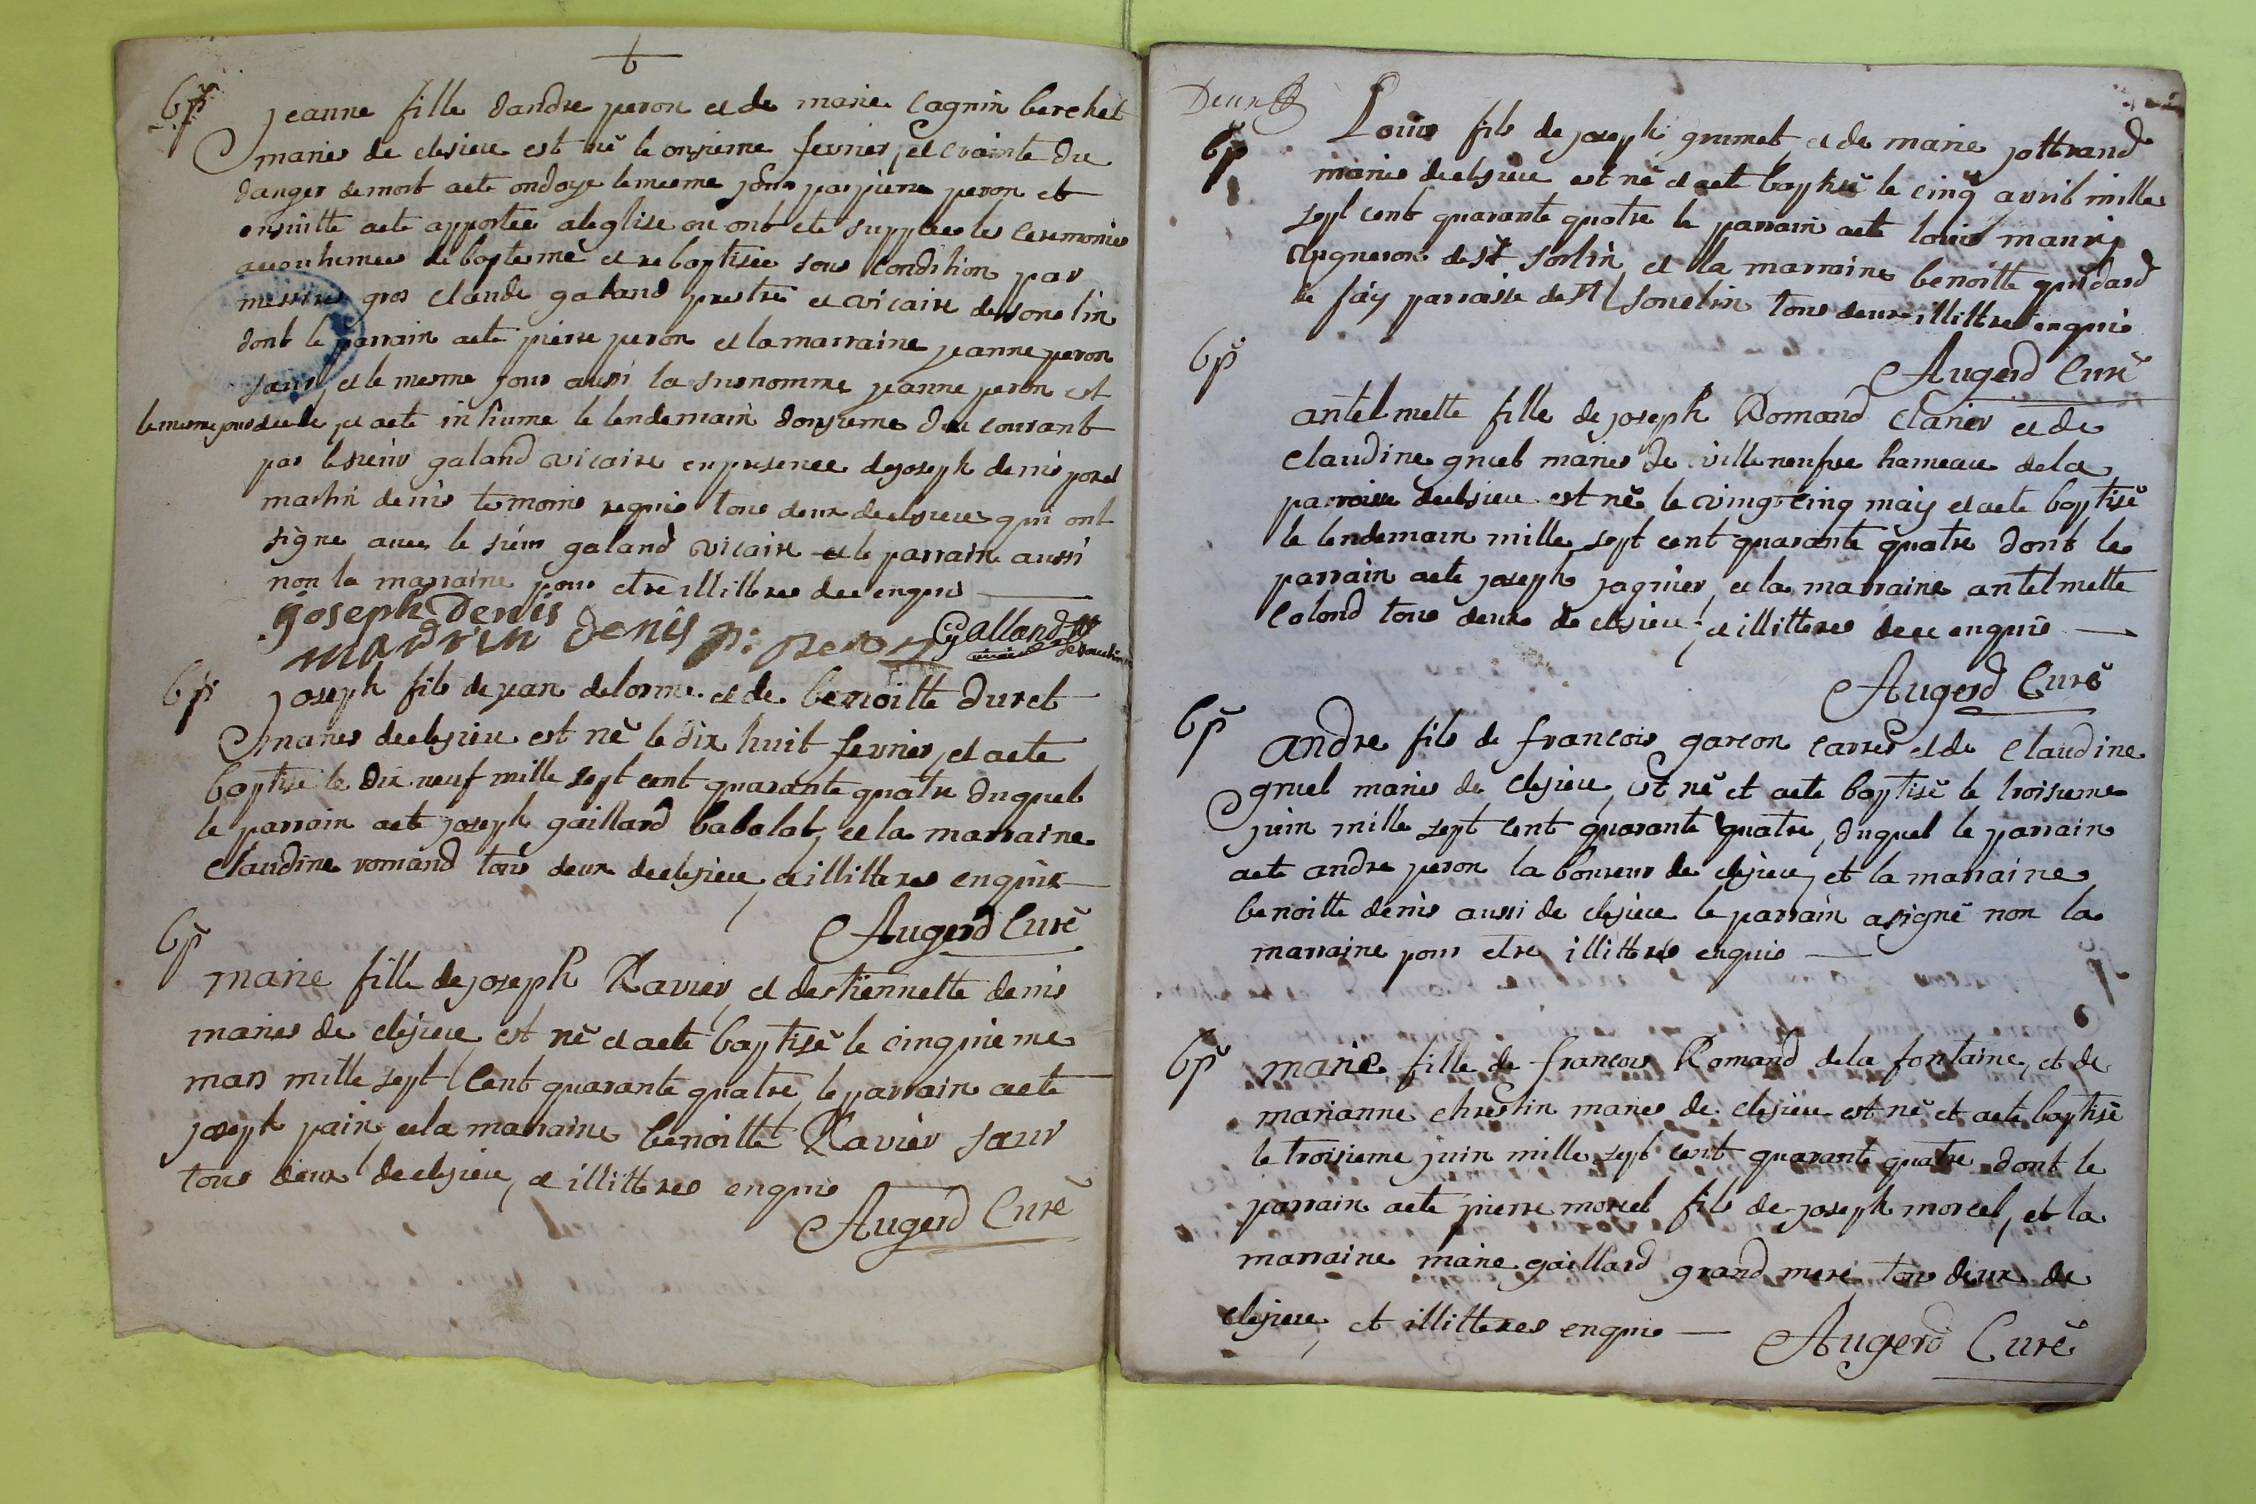 bp
jeanne fille dandre peron et de marie cagnin berchet
maries de clesieu est né le onzieme fevrier, et crainte du
danger de mort aete ondoye le mesme jour par pierre peron et
ensuitte aete apportée aleglise ou ont ete supplee les ceremonies
accoutumees de baptesme et rebaptisée sous condition par
messire gros claude galand prestre et vicaire de souclin
dont le parrain aete pierre peron et la marraine jeanne peron
sœur, et le mesme jour aussi la susnomme jeanne peron est
le mesme jour decede et aete inhume le lendemain douzieme du courant
par le sieur galand vicaire en presence de joseph denis
martin denis temoins requis tous deux de clesieu qui ont
signe avec le sieur galand vicaire et le parrain aussi
non la marraine pour etre illittere de ce enquis
joseph Denis
martin denis p: peron Galland
vicaire de souclin
bp
joseph fils de jean delorme et de benoitte duret
maries de clesieu est né le dix huit fevrier, et aete
baptise le dix neuf mille sept cent quarante quatre duquel
le parrain aete joseph gaillard babolat, et la marraine
claudine romand tous deux de clesieu, et illitteres enquis
Augerd Curé
bp
marie fille de joseph Ravier, et destiennette denis
maries de clesieu, est né et aete baptisé le cinquieme
mars mille sept cent quarante quatre, le parrain aete
joseph pain, et la marraine benoitte Ravier sœur
tous deux de clesieu, et illitteres enquis
Augerd Curé
Deux
bp
Louis fils de joseph grumet, et de marie jottrand
maries de clesieu est né et aete baptisé le cinq avril mille
sept cent quarante quatre le parrain aete louis
vigneron de st sorlin, et la marraine benoitte quidard
de fay parroisse de st souclin tous deux illitteres enquis
Augerd Curé
bp
antelmette fille de joseph Romand clarier et de
claudine gruel maries de villeneufve hameau de la
parroisse de clesieu est né le vingt cinq may et aete baptisé
le lendemain mille sept cent quarante quatre dont le
parrain aete joseph jagnier, et la marraine antelmette
colond tous deux de clesieu, et illitteres de ce enquis
Augerd Curé
bp
andre fils de francois garcon carrer et de claudine
gruel maries de clesieu, est né et aete baptisé le troisieme
juin mille sept cent quarante quatre, duquel le parrain
aete andre peron laboureur de clesieu, et la marraine
benoitte denis aussi de clesieu le parrain a signé non la
marraine pour etre illittere enquis
bp
marie fille de francois Romand de la fontaine, et de
marianne chrestin maries de clesieu est né et aete baptisé
le troisieme juin mille sept cent quarante quatre dont le
parrain aete pierre morel fils de joseph morel, et la
marraine marie gaillard grand mere, tous deux de
clesieu, et illitteres enquis Augerd Curé